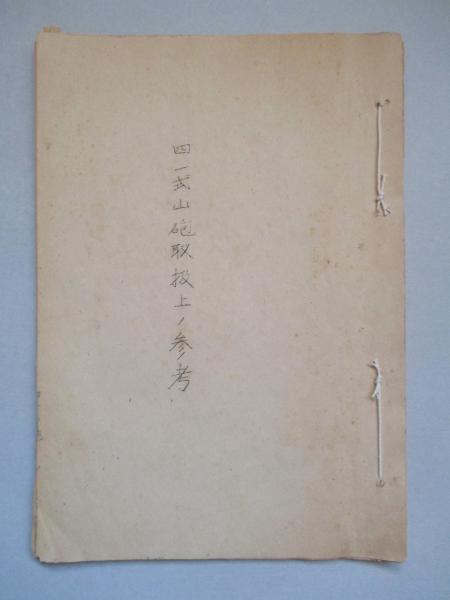 四一式山砲取扱上ノ参考